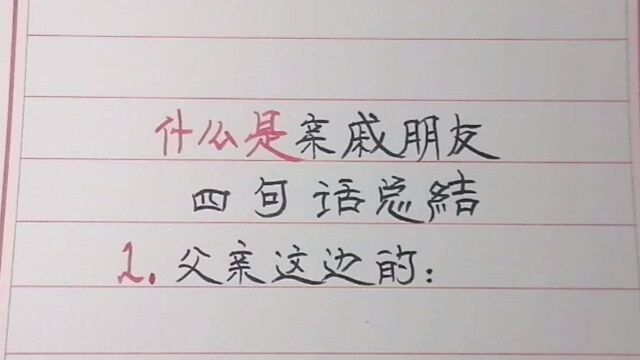 什么是亲戚朋友
四句话总结
1.父亲这边的：